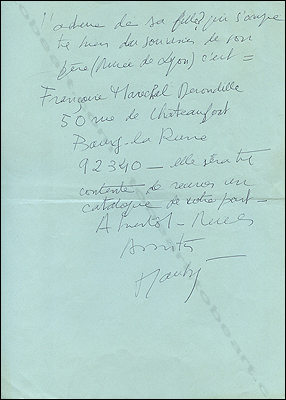 l'adresse de sa fille, qui s'occupe
très bien du souvenir de son
père (Musée de Lyon) c'est =
Françoise Marechal Derondille
50 rue de Chateaufort
Bourg-la Reine
92340 — elle sera très
contente de recevoir un
catalogue de votre part —
A bientôt — Merci